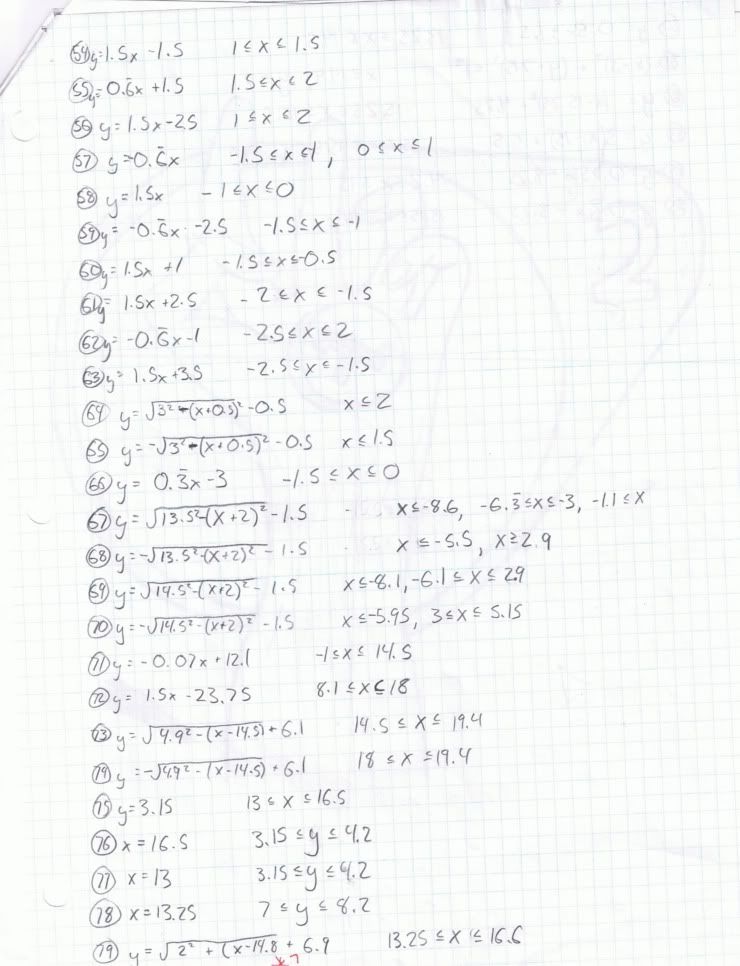 54 y=1.5x -1.5 1 ≤ x ≤ 1.5
55 y=0.6̄x +1.5 1.5 ≤ x ≤ 2
56 y= 1.5x-2.5 1 ≤ x ≤ 2
57 y=0.6̄x -1.5 ≤ x ≤ 1, 0 ≤ x ≤ 1
58 y=1.5x -1 ≤ x ≤ 0
59 y= -0.6̄x -2.5 -1.5 ≤ x ≤ -1
60 y= 1.5x +1 -1.5 ≤ x ≤ -0.5
61 y= 1.5x +2.5 -2 ≤ x ≤ -1.5
62 y= -0.6̄x-1 -2.5 ≤ x ≤ 2
63 y= 1.5x+3.5 -2.5 ≤ x ≤ -1.5
64 y= √3²-(x+0.5)² -0.5 x ≤ 2
65 y= -√3²-(x+0.5)² -0.5 x ≤ 1.5
66 y= 0.3̄x-3 -1.5 ≤ x ≤ 0
67 y= √13.5²-(x+2)² -1.5 x ≤ -8.6, -6.3̄ ≤ x ≤ -3, -1.1 ≤ x
68 y= -√13.5²-(x+2)² - 1.5 x ≤ -5.5, x ≥ 2.9
69 y= √14.5²-(x+2)² - 1.5 x ≤ -8.1, -6.1 ≤ x ≤ 2.9
70 y= -√14.5²-(x+2)² -1.5 x ≤ -5.95, 3 ≤ x ≤ 5.15
71 y= -0.07x + 12.1 -1 ≤ x ≤ 14.5
72 y= 1.5x -23.75 8.1 ≤ x ≤ 18
73 y= √4.9²-(x-14.5) + 6.1 14.5 ≤ x ≤ 19.4
74 y= -√4.9²-(x-14.5) + 6.1 18 ≤ x ≤ 19.4
75 y=3.15 13 ≤ x ≤ 16.5
76 x=16.5 3.15 ≤ y ≤ 4.2
77 x=13 3.15 ≤ y ≤ 4.2
78 x=13.25 7 ≤ y ≤ 8.2
79 y= √2² + (x-14.8 + 6.9 13.25 ≤ x ≤ 16.6